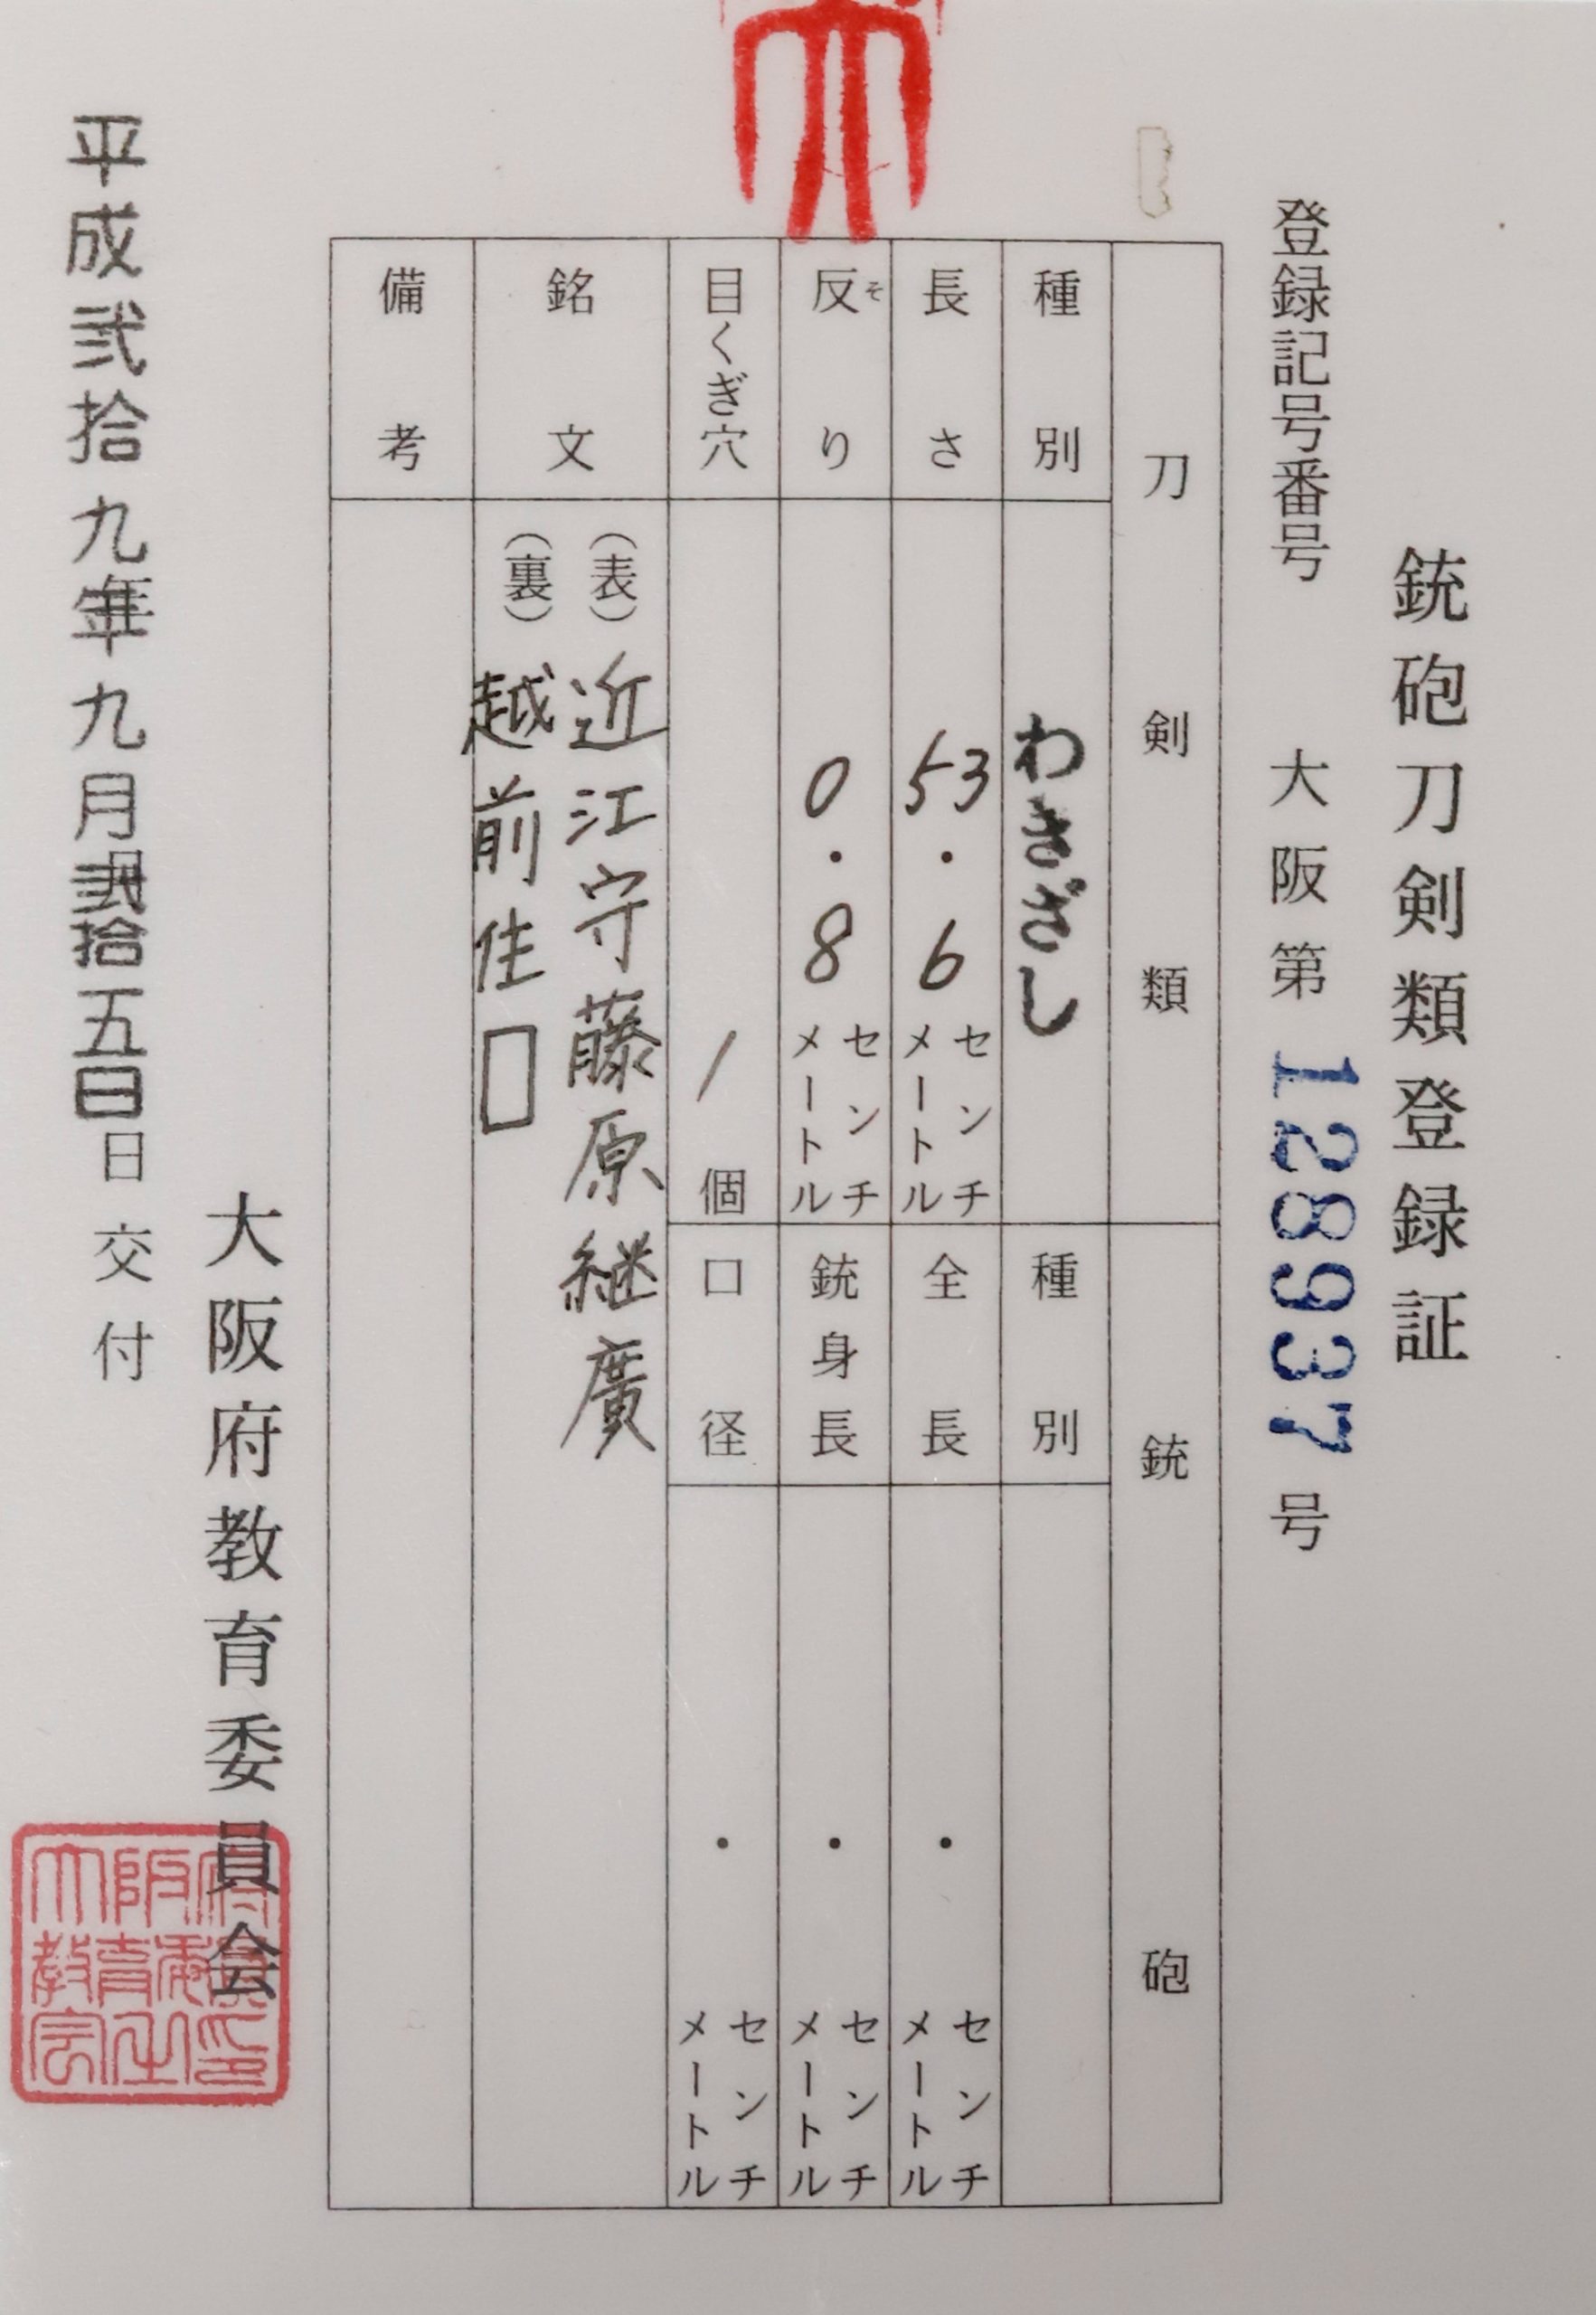 銃砲刀剣類登録証
登録記号番号 大阪第 128937 号
刀剣類
種別 わきざし
長さ 53.6 センチメートル
反り そ 0.8 センチメートル
目くぎ穴 1 個
銘文 (表) 近江守藤原継廣
(裏) 越前住□
備考
銃砲
種別
全長 ・ センチメートル
銃身長 ・ センチメートル
口径 ・ センチメートル
大阪府教育委員会
平成弐拾九年九月弐拾五日 日交付
大